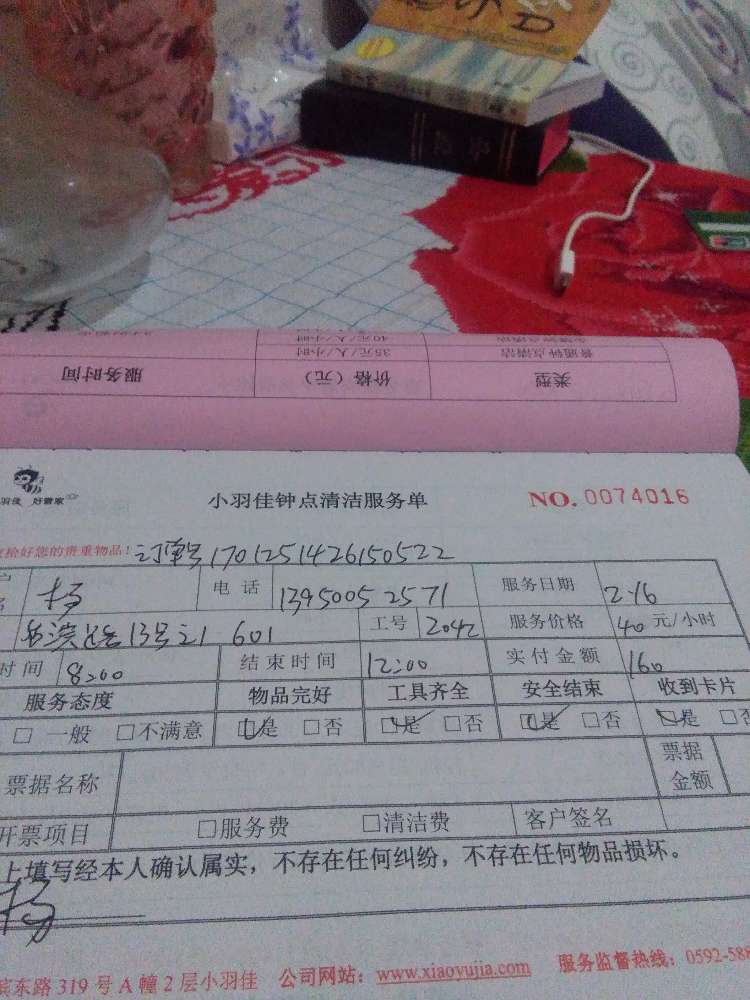 40元/人/小时
普通钟点清洁 35元/人/小时
类型 价格（元） 服务时间
羽佳 好管家
小羽佳钟点清洁服务单 NO. 0074016
检好您的贵重物品！订单号1701251426150522
杨 电话 13950052571 服务日期 2-16
13号之1 601 工号 2042 服务价格 40 元/小时
时间 8:00 结束时间 12:00 实付金额 160
服务态度 物品完好 工具齐全 安全结束 收到卡片
□ 一般 □不满意 ☑是 □否 ☑是 □否 ☑是 □否 ☑是 □否
票据名称 票据金额
开票项目 □服务费 □清洁费 客户签名
上填写经本人确认属实，不存在任何纠纷，不存在任何物品损坏。
杨
滨东路319号A幢2层小羽佳 公司网站：www.xiaoyujia.com 服务监督热线：0592-588